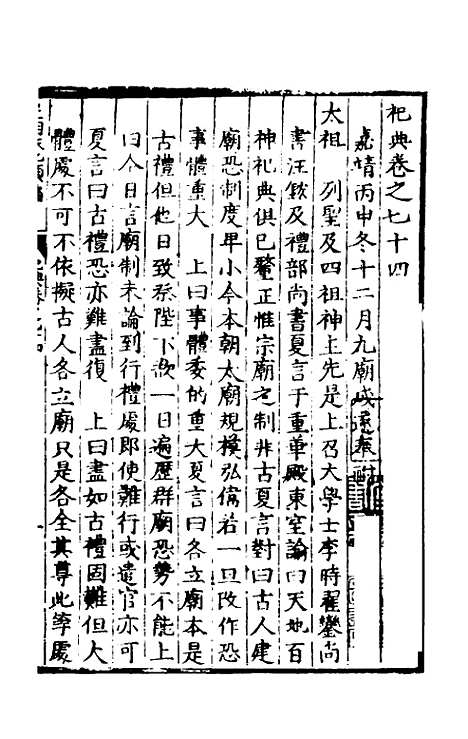 祀典卷之七十四
嘉靖丙申冬十二月九廟成遂奉
太祖 列聖及四祖神主先是上召大學士李時翟鑾尚
書汪鋐及禮部尚書夏言于重華殿東室論曰天地百
神祀典俱已釐正惟宗廟之制非古夏言對曰古人建
廟恐制度卑小今本朝太廟規模弘偉若一旦改作恐
事體重大 上曰事體委的重大夏言曰各立廟本是
古禮但他日致祭陛下欲一日遍歷群廟恐勢不能上
曰今日言廟制未論到行禮處即使難行或遣官亦可
夏言曰古禮恐亦難盡復 上曰盡如古禮固難但大
體處不可不依擬古人各立廟只是各全其尊此等處